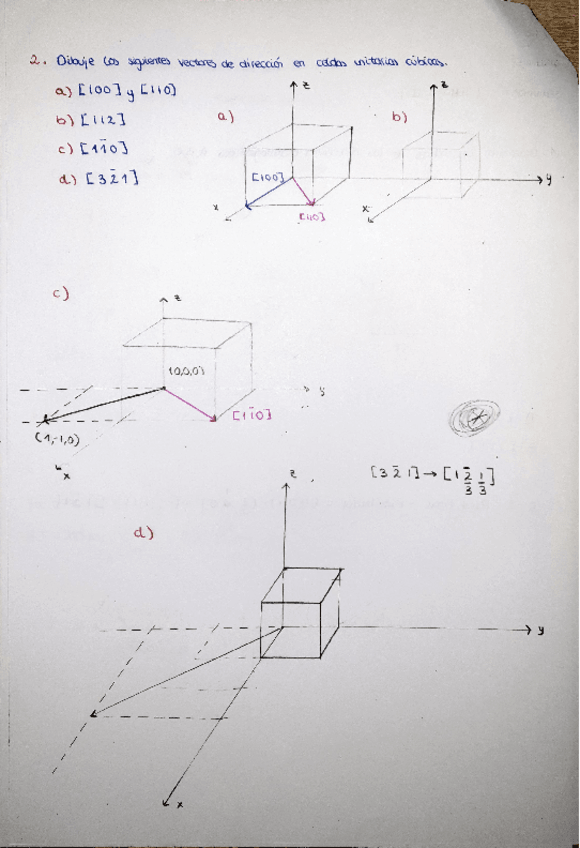 2. Dibuje los siguientes vectores de dirección en celdas unitarias cúbicas.
a) [100] y [110]
b) [112]
c) [11̄0]
d) [32̄1]
a)
z
[100]
[110]
x
b)
z
y
x
c)
z
(0,0,0)
y
[11̄0]
(1,-1,0)
x
[3 2̄ 1] → [1 2̄/3 1/3]
d)
z
y
x